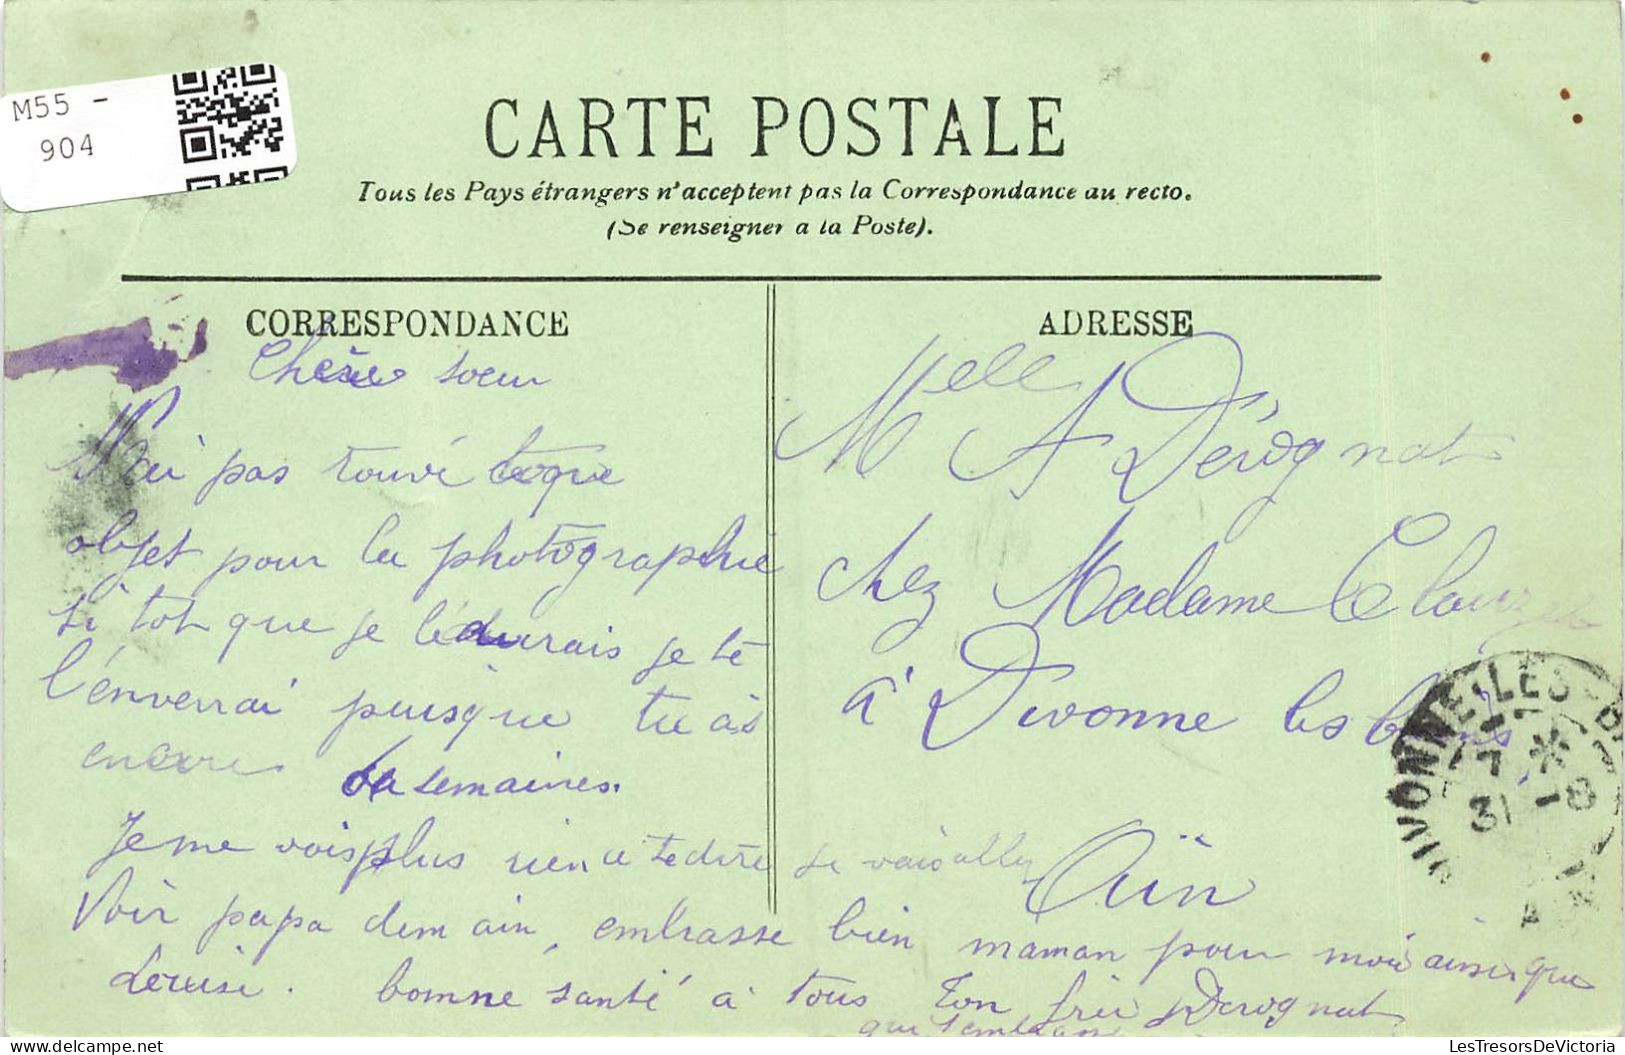 M55 -
904
CARTE POSTALE
Tous les Pays étrangers n'acceptent pas la Correspondance au recto.
(Se renseigner a la Poste).
CORRESPONDANCE
Chère soeur
N'ai pas trouvé
objet pour la photographie
si tot que je je te
l'énverrai puisque tu às
encore semaines.
Je me vois plus rien a te dire je vais aller
Voir papa demain, embrasse bien maman pour moi ainsi que
Louise. bonne santé a tous Ton frère Derognat
qui
ADRESSE
Melle A Dérognat
chez Madame Clauzel
à Divonne les bains
Ain
DIVONNE-LES-B
31 -8
LesTresorsDeVictoria